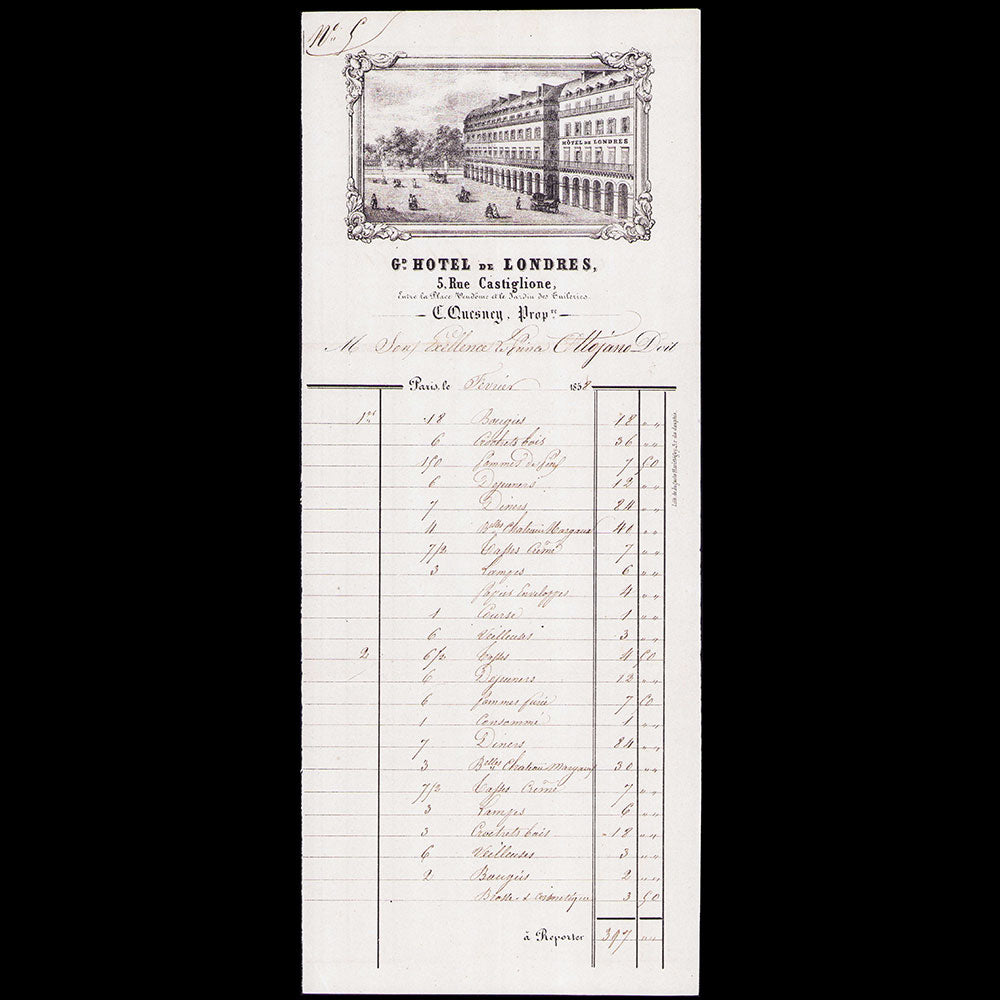 Nº 5
HÔTEL DE LONDRES
Gᴰ HOTEL DE LONDRES,
5, Rue Castiglione,
Entre la Place Vendôme et le Jardin des Tuileries.
C. Quesney, Propʳᵉ
M Son Exellence le Prince Ottajano Doit
Paris, le Février 1858
1er 18 Bougies 18 " "
6 Crochets bois 36 " "
150 7 50
6 Dejeuners 12 " "
7 Diners 84 " "
4 Blles Chateau Margaux 40 " "
7/2 Tasses Crême 7 " "
3 Lampes 6 " "
Papier Enveloppes 4 " "
1 Course 1 " "
6 Veilleuses 3 " "
2 6/2 Tasses 4 50
6 Dejeuners 12 " "
6 7
1 Consommé 1 " "
7 Diners 84 " "
3 Blles Chateau Margaux 30 " "
7/2 Tasses Crême 7 " "
3 Lampes 6 " "
3 Crochets bois 18 " "
6 Veilleuses 3 " "
2 Bougies 2 " "
Brosse & cosmetique 3 50
à Reporter 397 " "